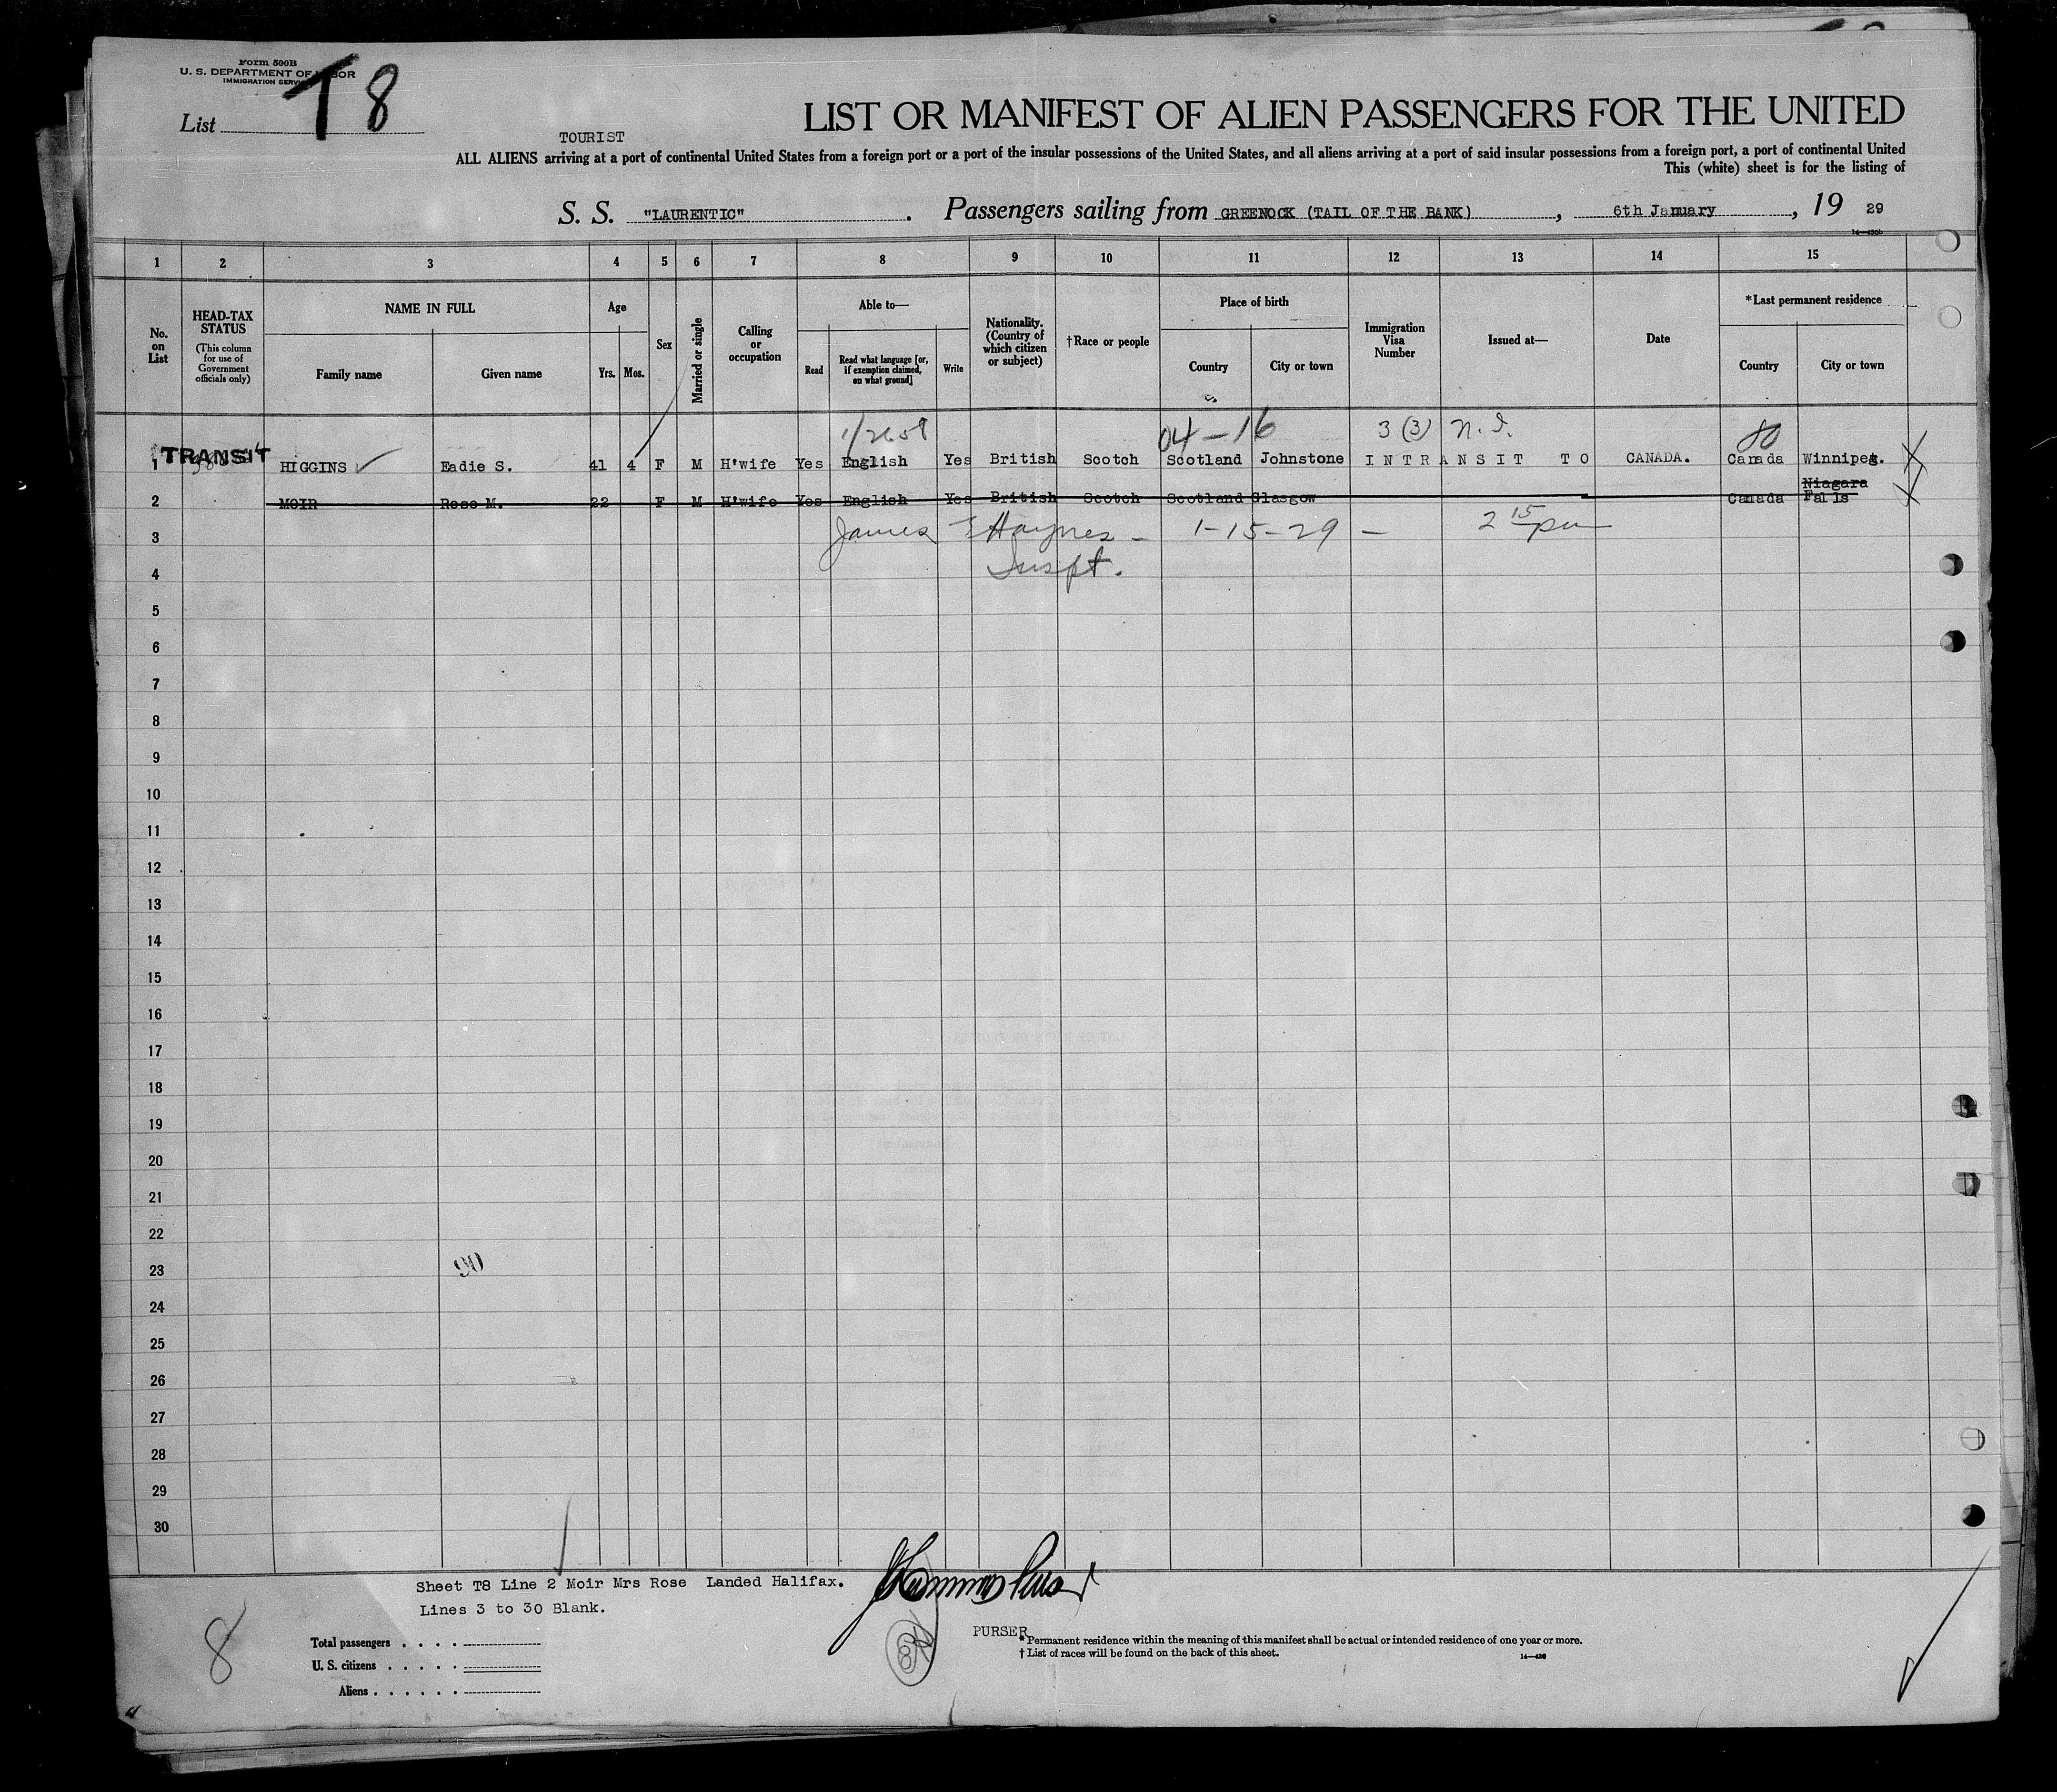 Form 500B
U. S. DEPARTMENT OF LABOR
IMMIGRATION SERVICE
List T8
LIST OR MANIFEST OF ALIEN PASSENGERS FOR THE UNITED
TOURIST
ALL ALIENS arriving at a port of continental United States from a foreign port or a port of the insular possessions of the United States, and all aliens arriving at a port of said insular possessions from a foreign port, a port of continental United
This (white) sheet is for the listing of
S. S. "LAURENTIC". Passengers sailing from GREENOCK (TAIL OF THE BANK), 6th January, 19 29
1 2 3 4 5 6 7 8 9 10 11 12 13 14 15
No. on List
HEAD-TAX STATUS
(This column for use of Government officials only)
NAME IN FULL
Family name Given name
Age
Yrs. Mos.
Sex
Married or single
Calling or occupation
Able to—
Read
Read what language [or, if exemption claimed, on what ground]
Write
Nationality. (Country of which citizen or subject)
†Race or people
Place of birth
Country City or town
Immigration Visa Number
Issued at—
Date
*Last permanent residence
Country City or town
04-16 3(3) N.I. 80
1 TRANSIT HIGGINS Eadie S. 41 4 F M H'wife Yes English Yes British Scotch Scotland Johnstone INTRANSIT TO CANADA. Canada Winnipeg.
2 MOIR Rose M. 22 F M H'wife Yes English Yes British Scotch Scotland Glasgow Canada Niagara Falls
3 James E Haynes - 1-15-29 - 2 15 pm
4 Inspt.
5
6
7
8
9
10
11
12
13
14
15
16
17
18
19
20
21
22
23 90
24
25
26
27
28
29
30
Sheet T8 Line 2 Moir Mrs Rose Landed Halifax.
Lines 3 to 30 Blank.
8
PURSER
Total passengers . . . .
U. S. citizens . . . . .
Aliens . . . . . .
*Permanent residence within the meaning of this manifest shall be actual or intended residence of one year or more.
† List of races will be found on the back of this sheet.